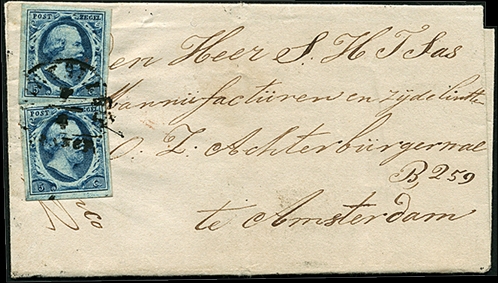 POST ZEGEL
5 C
POST ZEGEL
5 C
Den Heer S. H. T Sas
Mannufacturen en zijde lintte
O. Z. Achterburgerwal
B, 259
te Amsterdam